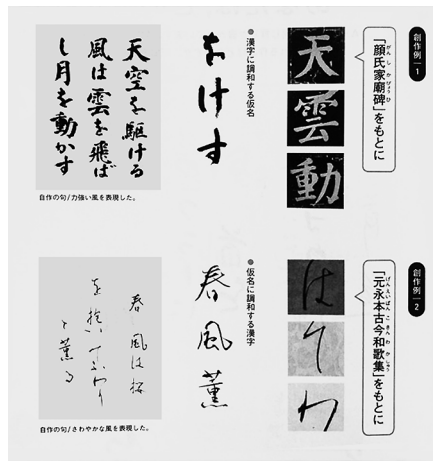 創作例 1
がんしかびょうひ
「顔氏家廟碑」をもとに
天
雲
動
●漢字に調和する仮名
をけす
天空を駆ける
風は雲を飛ば
し月を動かす
自作の句/力強い風を表現した。
創作例 2
げんえいぼんこきんわかしゅう
「元永本古今和歌集」をもとに
は
わ
●仮名に調和する漢字
春風薫
春風は桜
を抱いてふわり
と薫る
自作の句/さわやかな風を表現した。